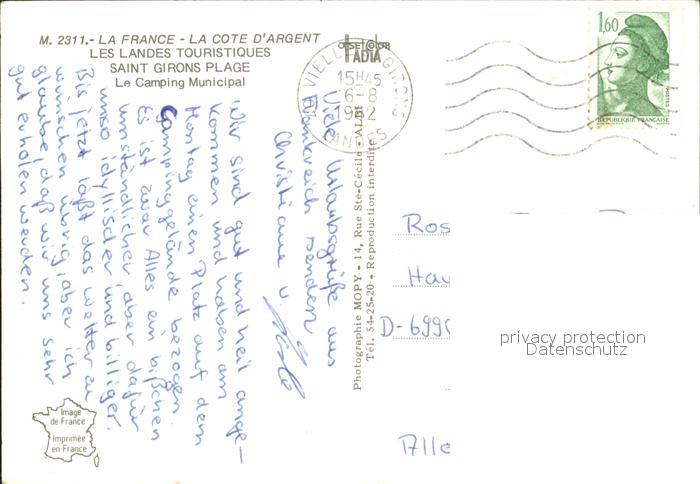 M. 2311.- LA FRANCE - LA COTE D'ARGENT
LES LANDES TOURISTIQUES
SAINT GIRONS PLAGE
Le Camping Municipal
Wir sind gut und heil ange-
kommen und haben am
Montag einen Platz auf dem
Campinggelände bezogen.
Es ist zwar Alles ein bißchen
umständlicher, aber dafür
umso idyllischer und billiger.
Bis jetzt läßt das Wetter zu
wünschen übrig, aber ich
glaube, daß wir uns sehr
gut erholen werden.
Viele Urlaubsgrüße aus
Frankreich senden
Christiane u.
Photographie MOPY - 14, Rue Ste-Cécile -
Tél. 54-25-20 - Reproduction interdite
VIELLE GIRONS
15H45
6-8
1982
LANDES
1,60
POSTES
REPUBLIQUE FRANÇAISE
Ros
Hau
D-6990
Alle
privacy protection
Datenschutz
Image
de France
Imprimée
en France